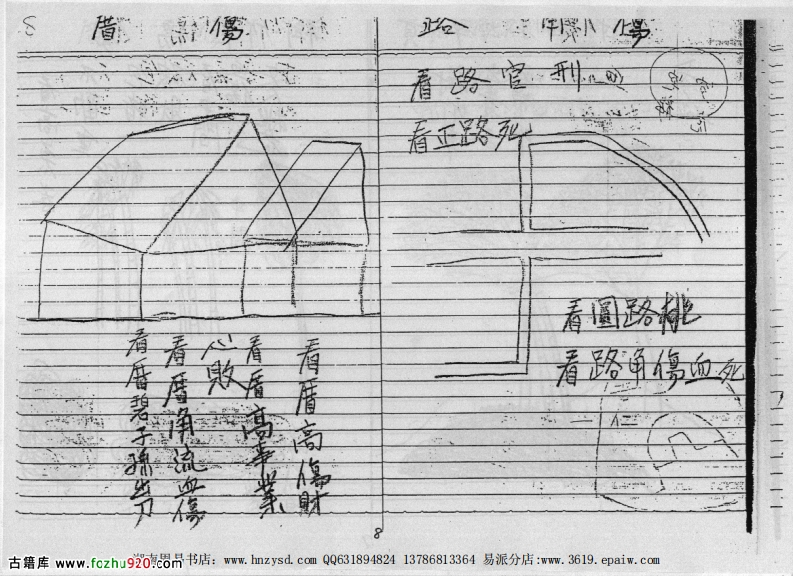 路 刑 傷
看路官刑
看正路死
看圓路桃
看路角傷血死
8
厝 傷
看厝高傷財
看厝高事業
必敗
看厝角流血傷
看厝碧子孫出刀
8
周易书店：www.hnzysd.com QQ631894824 13786813364 易派分店:www.3619.epaiw.com
古籍库 www.fczhu920.com